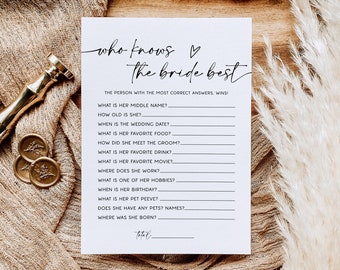 who knows
the bride best
THE PERSON WITH THE MOST CORRECT ANSWERS, WINS!
WHAT IS HER MIDDLE NAME?
HOW OLD IS SHE?
WHEN IS THE WEDDING DATE?
WHAT IS HER FAVORITE FOOD?
HOW DID SHE MEET THE GROOM?
WHAT IS HER FAVORITE DRINK?
WHAT IS HER FAVORITE MOVIE?
WHERE DOES SHE WORK?
WHAT IS ONE OF HER HOBBIES?
WHEN IS HER BIRTHDAY?
WHAT IS HER PET PEEVE?
DOES SHE HAVE ANY PETS? NAMES?
WHERE WAS SHE BORN?
total